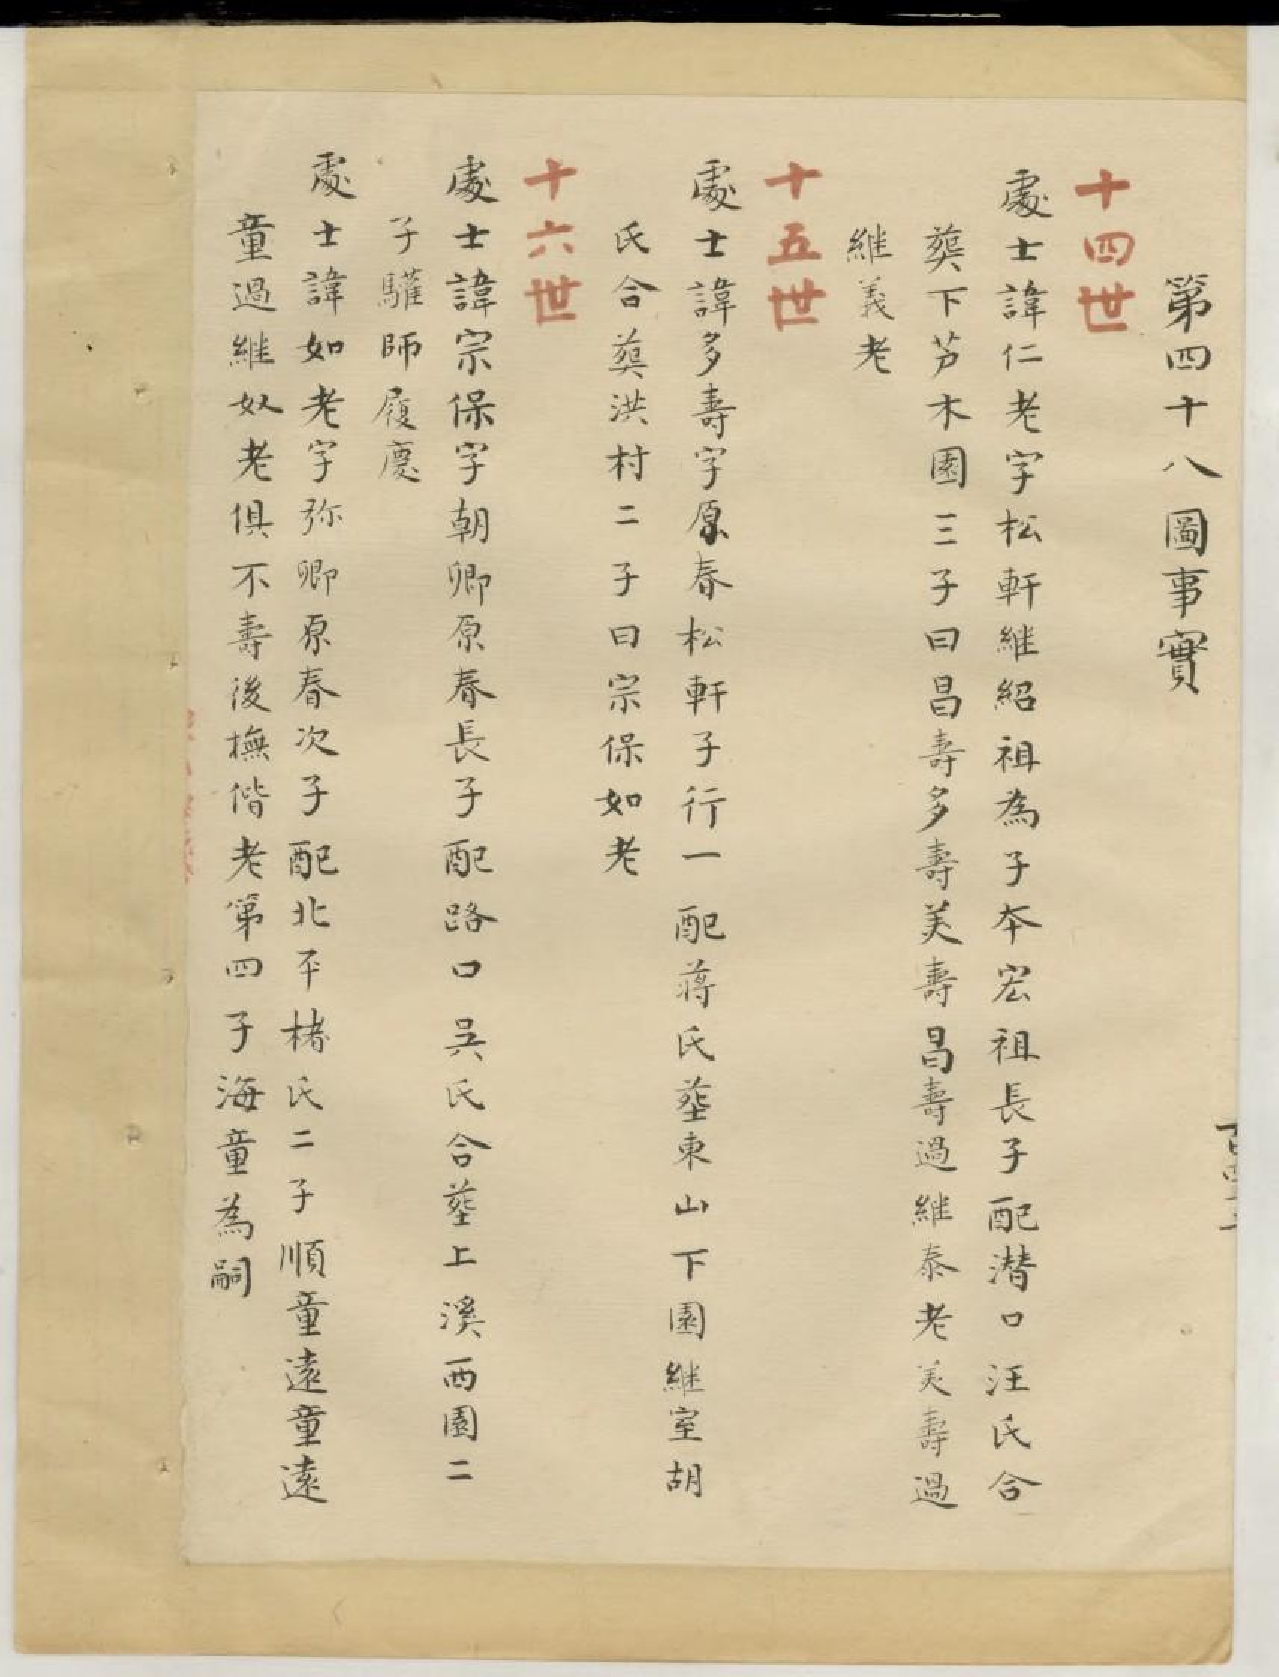 第四十八圖事實
十四世
處士諱仁老字松軒繼紹祖為子本宏祖長子配潛口汪氏合
塟下芀木園三子曰昌壽多壽美壽昌壽過繼泰老美壽過
繼義老
十五世
處士諱多壽字原春松軒子行一配蔣氏塟東山下園繼室胡
氏合塟洪村二子曰宗保如老
十六世
處士諱宗保字朝卿原春長子配路口吳氏合塟上溪西園二
子驩師履慶
處士諱如老字弥卿原春次子配北平楮氏二子順童遠童遠
童過繼奴老俱不壽後撫偕老第四子海童為嗣